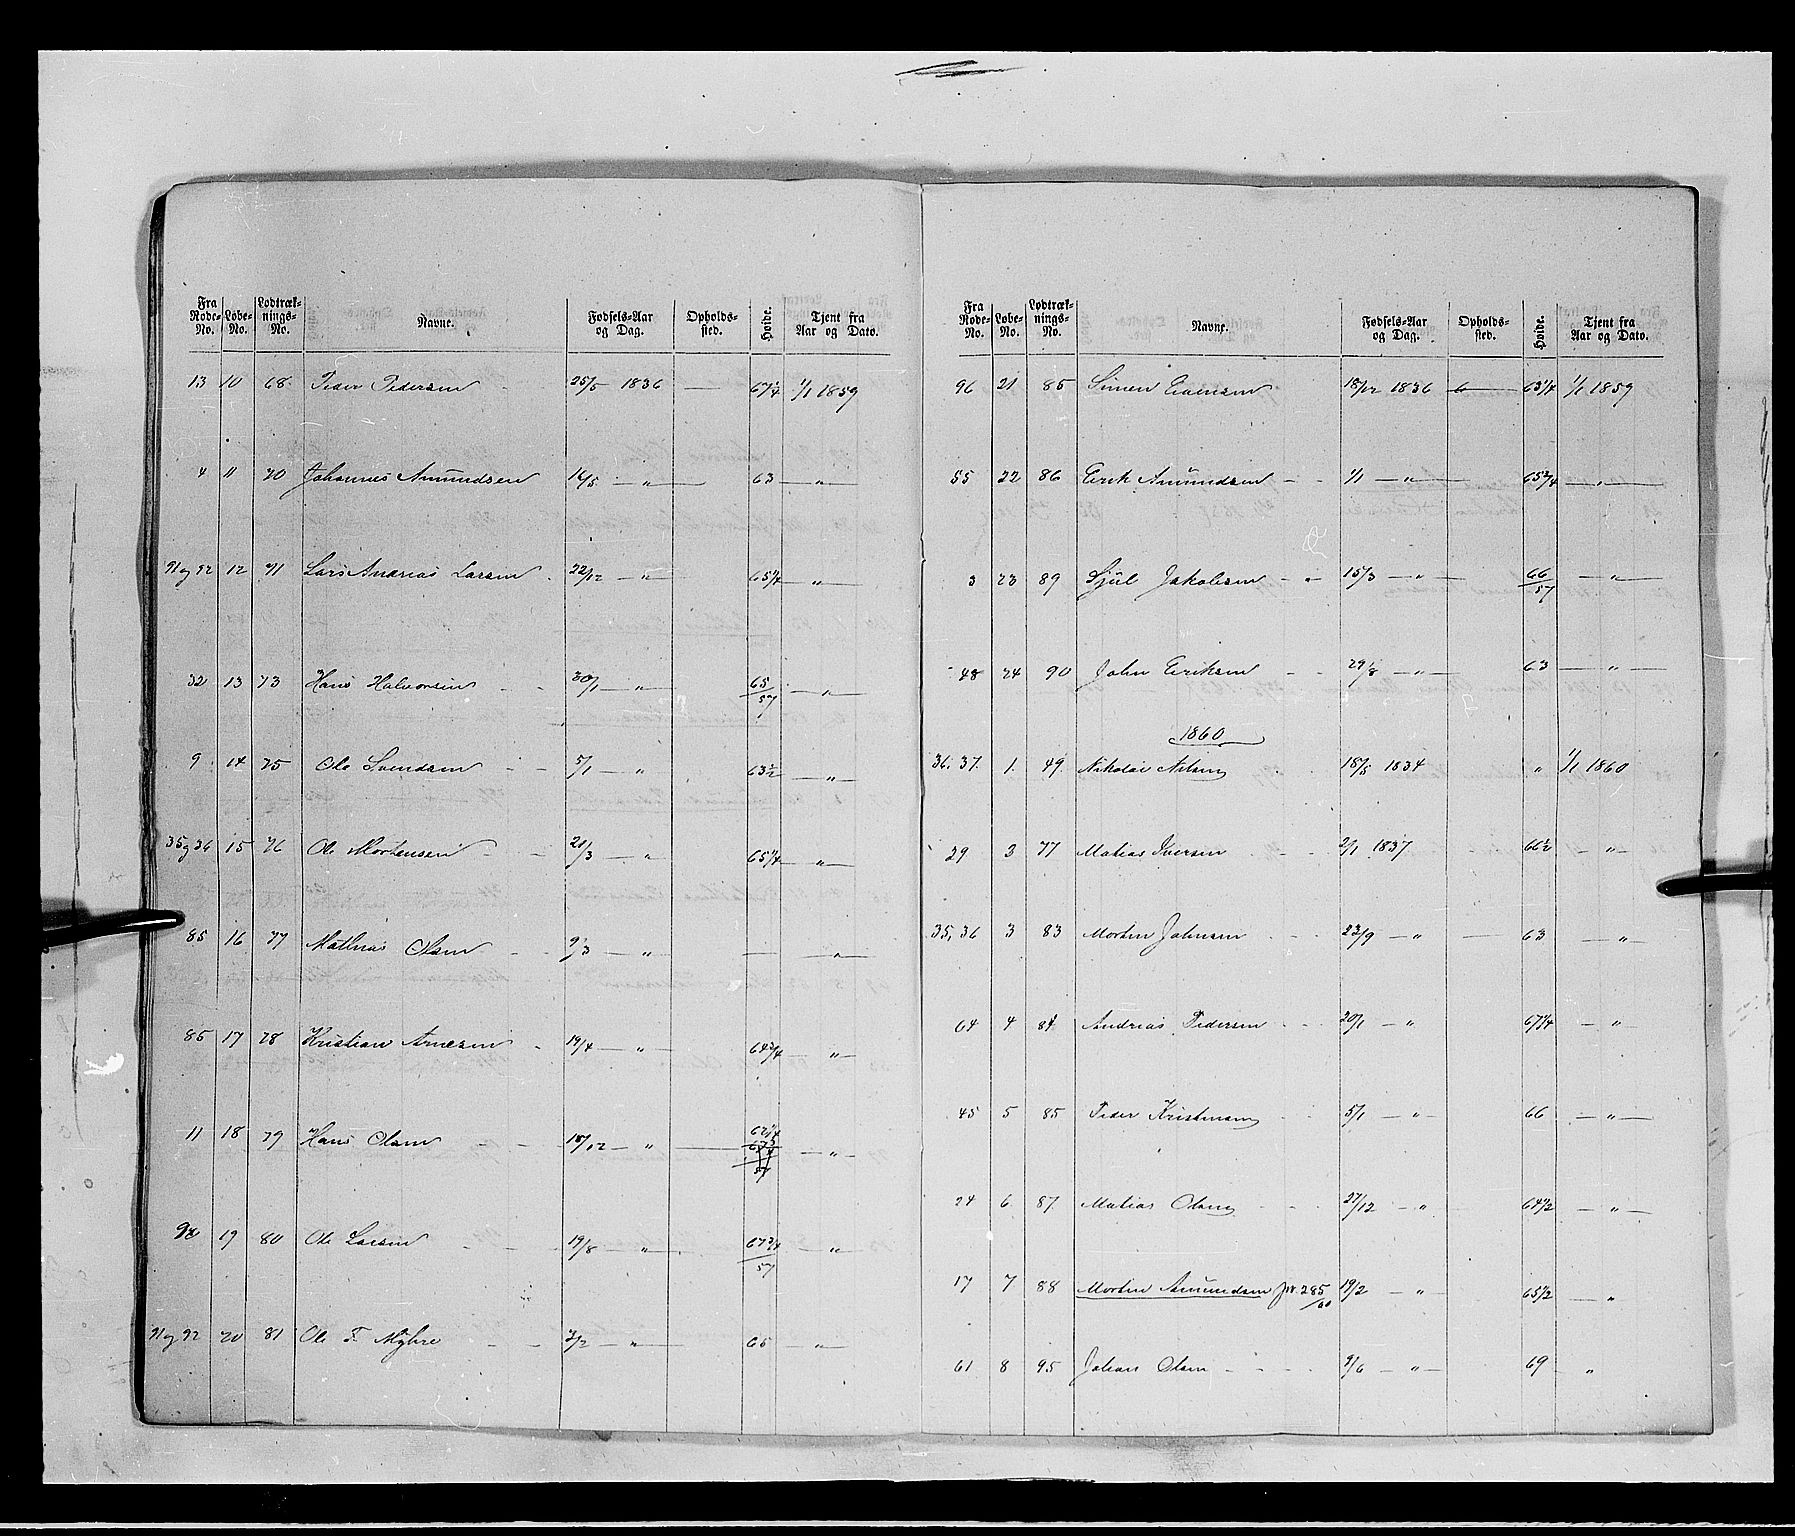 Fra Rode-No. Løbe-No. Lodtræk-nings-No. Navne. Fødsels-Aar og Dag. Opholds-sted. Høide. Tjent fra Aar og Dato.
13 10 68 Peder Pedersen 25/5 1836 — 67 1/4 1/1 1859
4 11 70 Johannes Amundsen 14/5 — " — 63 — " —
91 og 92 12 71 Lars Andreas Larsen 22/12 — " 65 1/4 — " —
32 13 73 Hans Halvorsen 30/1 — " — 65/57 — " —
9 14 75 Ole Svendsen 5/1 — " 63 1/2 — " —
35 og 36 15 76 Ole Mortensen 21/3 — " 65 1/4 — " —
85 16 77 Mathias Olsen 9/3 — " — — " —
85 17 78 Kristian Arnesen 19/4 — " — 64 3/4 — " —
11 18 79 Hans Olsen 18/12 — " — 62 1/4 57 — " —
92 19 80 Ole Larsen 19/8 — " — 67 3/4 / 57 — " —
91 og 92 20 81 Ole T. Myhre 2/2 — " — 65 — " —
Fra Rode-No. Løbe-No. Lodtræk-nings-No. Navne. Fødsels-Aar og Dag. Opholds-sted. Høide. Tjent fra Aar og Dato.
96 21 85 Simen Evensen 18/12 1836 — 63 1/4 1/1 1859
55 22 86 Erik Amundsen 1/1 — " — 65 3/4 — " —
3 23 89 Sjul Jakobsen 15/3 — " — 66/57 — " —
48 24 90 John Eriksen 29/8 — " — 63 — " —
1860
36. 37. 1. 49. Nikolai Nilsen 18/5 1834 " 1/1 1860
29 3 77 Matias Iversen 2/1 1837 66 1/2 — " —
35, 36 3 83 Morten Johnsen 23/9 — " — 63 — " —
64 4 84 Andreas Pedersen 20/1 — " 67 1/4 — " —
45 5 85 Peder Kristiansen 5/1 — " — 66 — " —
24 6 87. Matias Olsen 27/12 — " 64 1/2 — " —
17 7 88 Morten Amundsen 285/60 19/2 — " — 65 1/2 — "
61 8 95 Johan Olsen 9/6 — " — 69 "